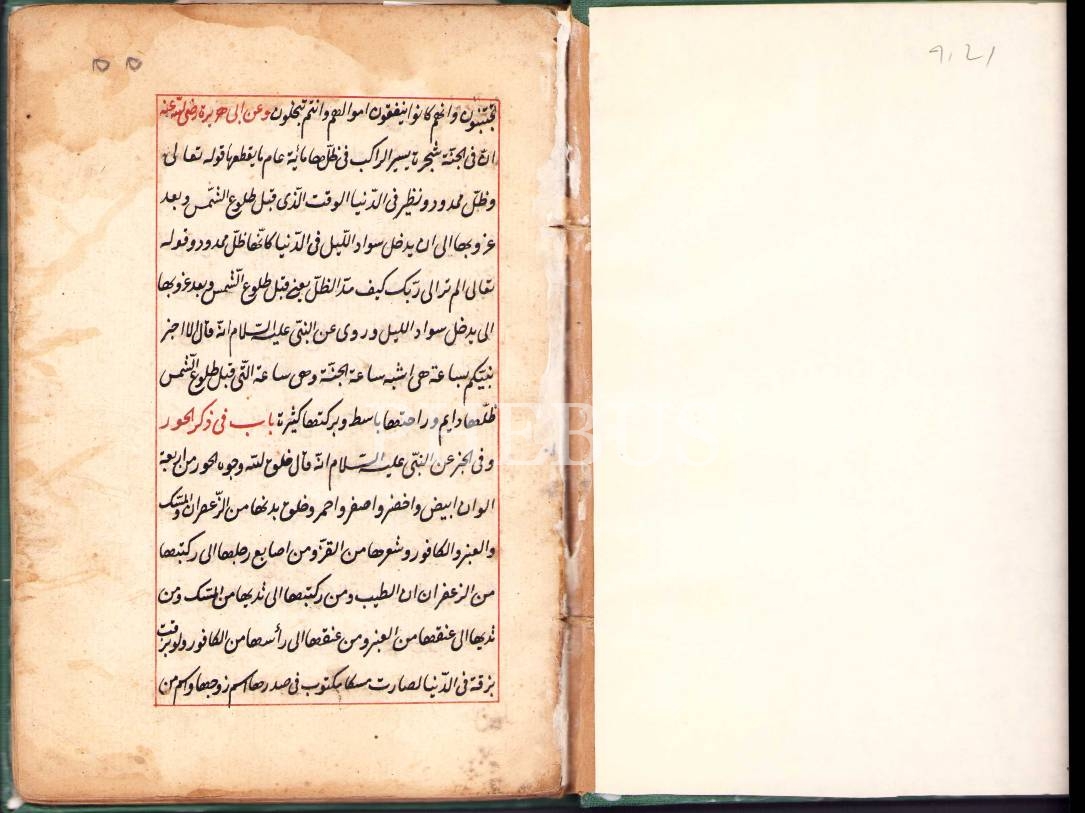 ٥٥
٩,٢١
فتجبنون وانهم كانوا ينفقون اموالهم وانتم تبخلون وعن ابى هريرة رضى الله عنه
ان فى الجنّة شجرة يسير الراكب فى ظلّها مائة عام ما يقطعها قوله تعالى
وظلّ ممدود ونظير فى الدّنيا الوقت الّذى قبل طلوع الشّمس وبعد
غروبها الى ان يدخل سواد اللّيل فى الدّنيا كانّها ظلّ ممدود وقوله
تعالى الم تر الى ربّك كيف مدّ الظلّ يعنى قبل طلوع الشّمس وبعد غروبها
الى يدخل سواد الليل وروى عن النبّى عليه السّلام انّه قال الا اخبر
نبيّكم بساعة هى اشبه ساعة الجنّة وهى ساعة التّى قبل طلوع الشّمس
ظلّها دايم وراحتها باسط وبركتها كثيرة باب فى ذكر الحور
وفى الخبر عن النبّى عليه السّلام انّه قال خلق الله وجوه الحور من اربعة
الوان ابيض واخضر واصفر واحمر وخلق بدنها من الزّعفران والمسك
والعنبر والكافور وشعرها من القزّ ومن اصابع رجلها الى ركبتها
من الزعفران ان الطيب ومن ركبتها الى ثديها من المسك ومن
ثديها الى عنقها من العنبر ومن عنقها الى رأسها من الكافور ولو بزقت
بزقة فى الدّنيا لصارت مسكا مكتوب فى صدرها اسم زوجها واسم من
PHEBUS